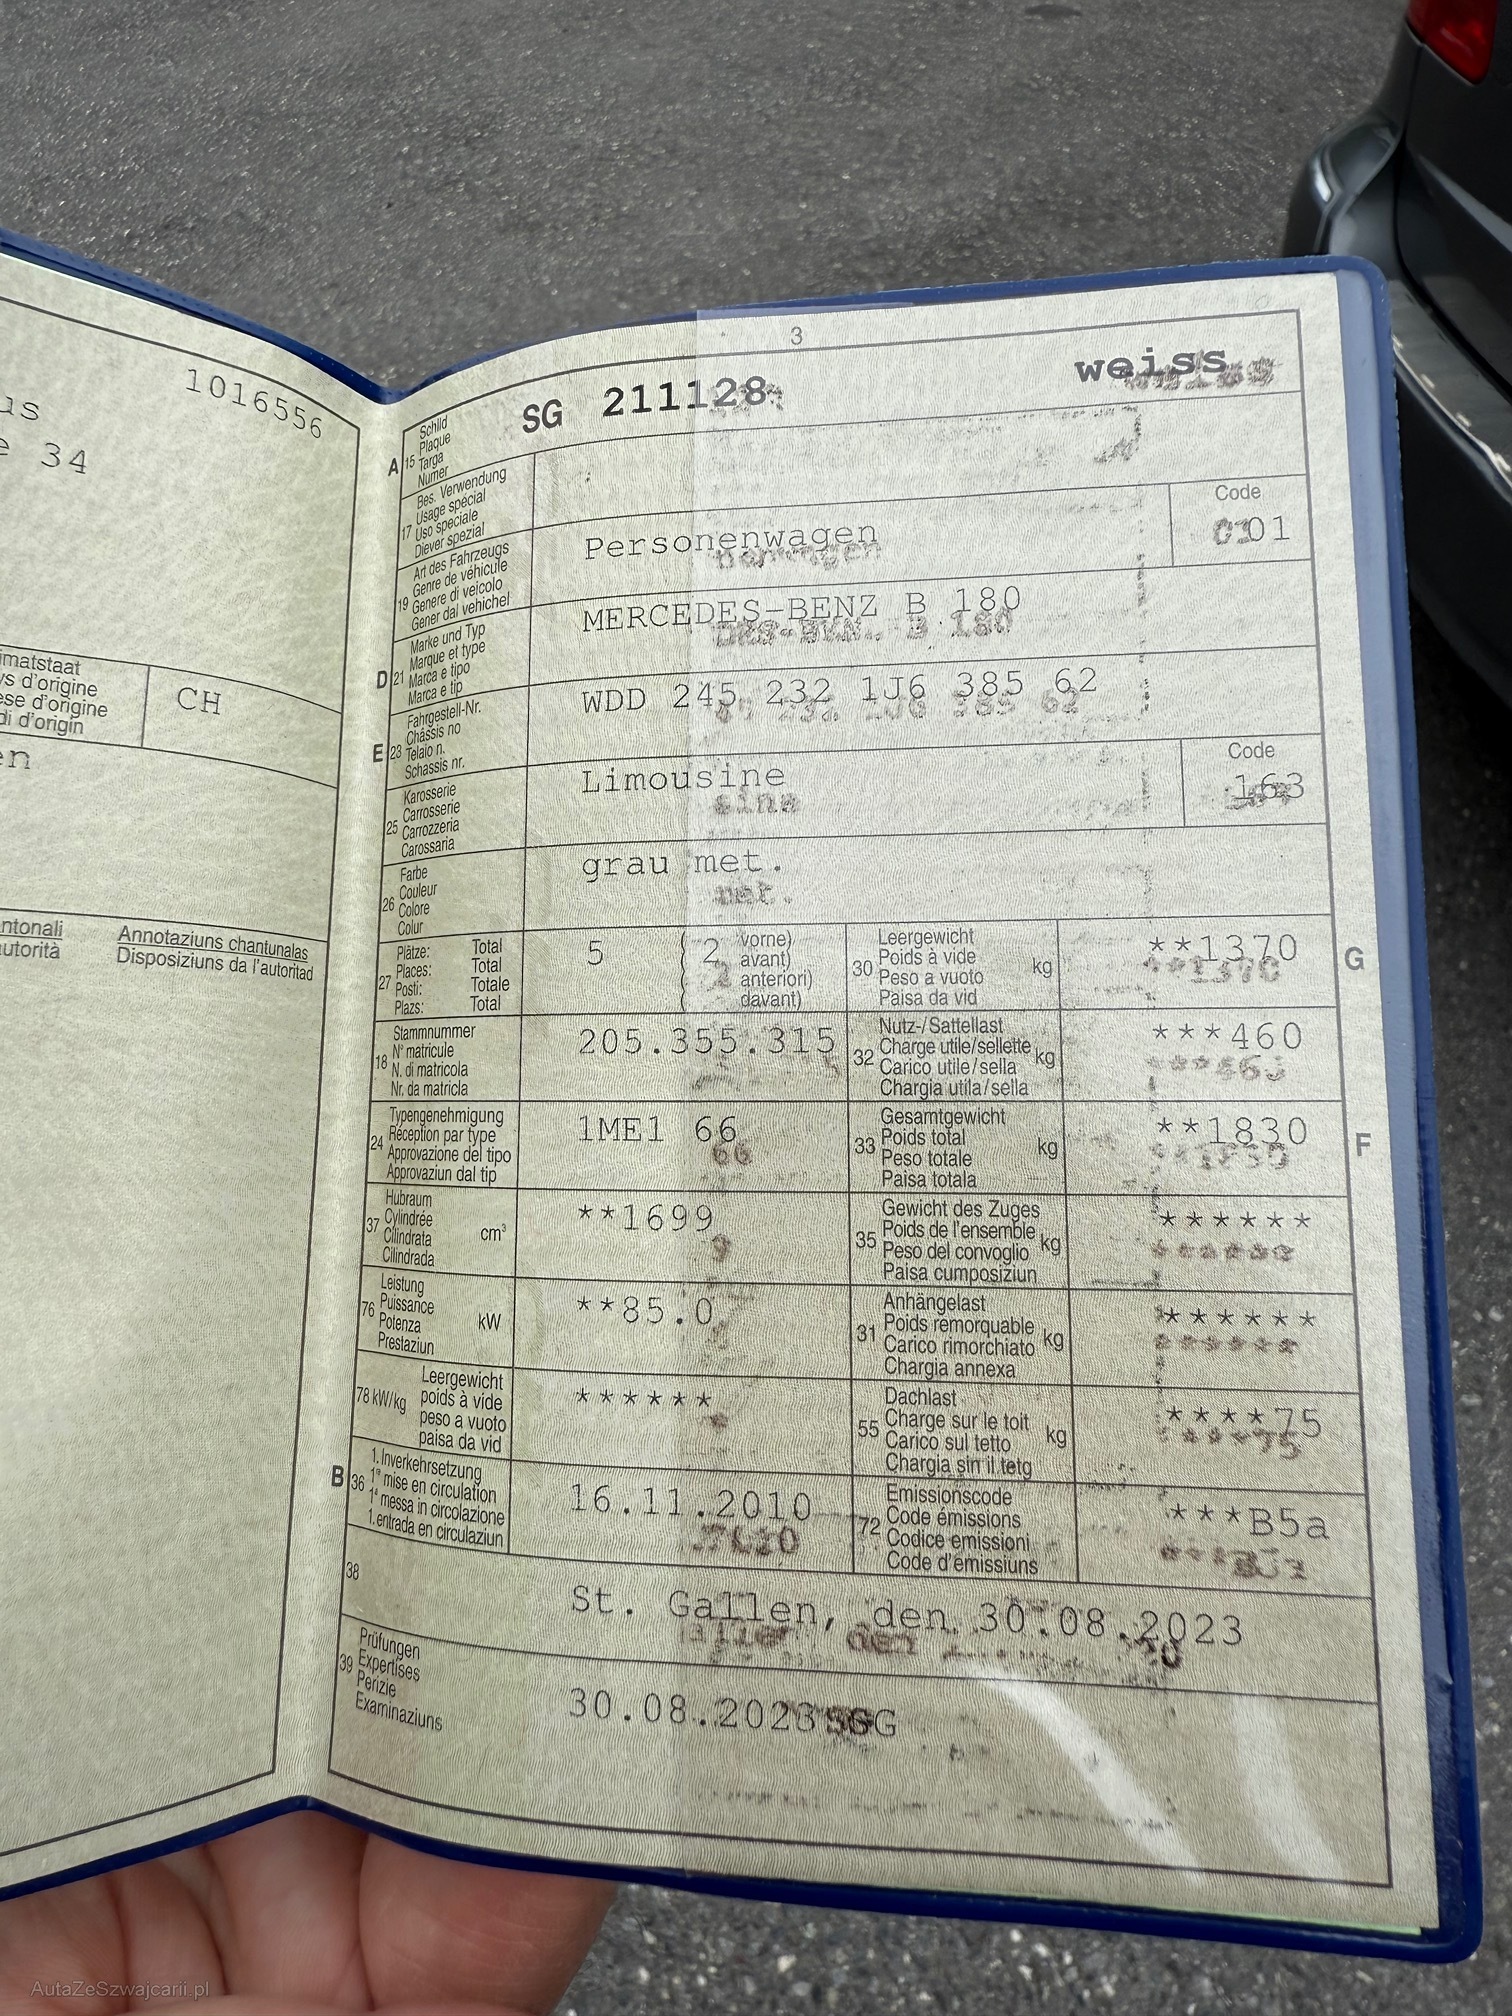 us
1016556
e 34
imatstaat
ys d'origine
ese d'origine
di d'origin
CH
en
ntonali
utorità
Annotaziuns chantunalas
Disposiziuns da l'autoritad
3
A
15
Schild
Plaque
Targa
Numer
SG 211128
weiss
17
Bes. Verwendung
Usage spécial
Uso speciale
Diever spezial
19
Art des Fahrzeugs
Genre de véhicule
Genere di veicolo
Gener dal vehichel
Personenwagen
Code
01
D
21
Marke und Typ
Marque et type
Marca e tipo
Marca e tip
MERCEDES-BENZ B 180
E
23
Fahrgestell-Nr.
Châssis no
Telaio n.
Schassis nr.
WDD 245 232 1J6 385 62
25
Karosserie
Carrosserie
Carrozzeria
Carossaria
Limousine
Code
163
26
Farbe
Couleur
Colore
Colur
grau met.
27
Plätze: Total
Places: Total
Posti: Totale
Plazs: Total
5
( 2 vorne)
avant)
anteriori)
( davant)
30
Leergewicht
Poids à vide
Peso a vuoto
Paisa da vid
kg
**1370
G
18
Stammnummer
N° matricule
N. di matricola
Nr. da matricla
205.355.315
32
Nutz-/Sattellast
Charge utile/sellette
Carico utile/sella
Chargia utila/sella
kg
***460
24
Typengenehmigung
Réception par type
Approvazione del tipo
Approvaziun dal tip
1ME1 66
33
Gesamtgewicht
Poids total
Peso totale
Paisa totala
kg
**1830
F
37
Hubraum
Cylindrée
Cilindrata
Cilindrada
cm³
**1699
35
Gewicht des Zuges
Poids de l'ensemble
Peso del convoglio
Paisa cumposiziun
kg
******
76
Leistung
Puissance
Potenza
Prestaziun
kW
**85.0
31
Anhängelast
Poids remorquable
Carico rimorchiato
Chargia annexa
kg
******
78 kW/kg
Leergewicht
poids à vide
peso a vuoto
paisa da vid
******
55
Dachlast
Charge sur le toit
Carico sul tetto
Chargia sin il tetg
kg
****75
B
36
1. Inverkehrsetzung
1re mise en circulation
1a messa in circolazione
1. entrada en circulaziun
16.11.2010
72
Emissionscode
Code émissions
Codice emissioni
Code d'emissiuns
***B5a
38
St. Gallen, den 30.08.2023
39
Prüfungen
Expertises
Perizie
Examinaziuns
30.08.2023
AutaZeSzwajcarii.pl